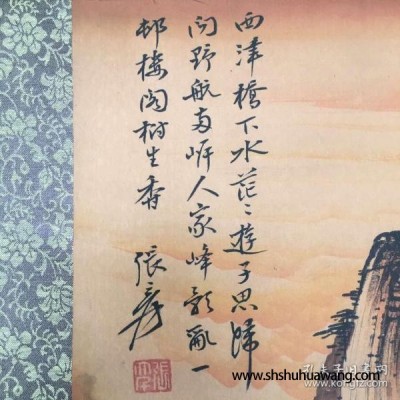 西津橋下水茫〻遊子思歸
问野航两岸人家峰影亂一
邨樓阁樹生香 張爰
www.shshuhuawang.com